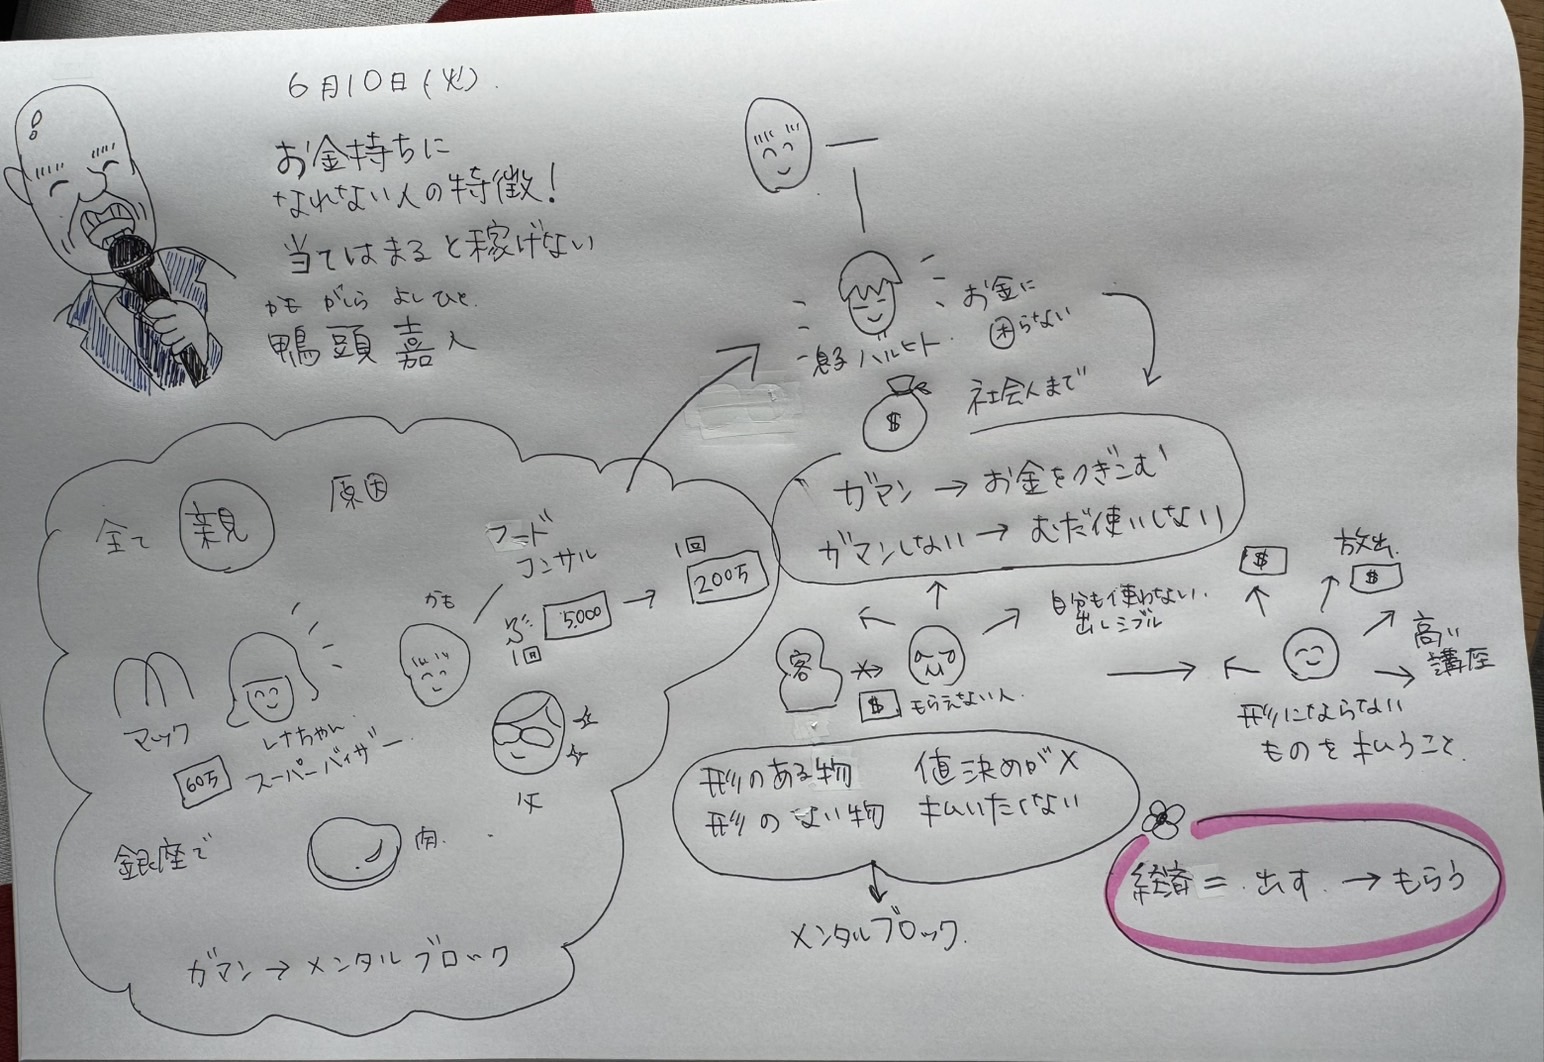 6月10日(火).
お金持ちに
なれない人の特徴!
当てはまると稼げない
かも がしら よしひと.
鴨頭 嘉人
全て 親 原因
フード
コンサル
かも
1回
5000
1回
200万
マック
レナちゃん
60万
スーパーバイザー
銀座で
肉.
ガマン→メンタルブロック
息子ハルヒト.
お金に
困らない
$
社会人まで
ガマン→お金をつぎこむ
ガマンしない→むだ使いしない
自分も使わない.
出しシブル
客
$
もらえない人.
形のある物 値決めが×
形のない物 払いたくない
メンタルブロック.
$
放出.
$
高い
講座
形にならない
ものを払うこと.
経済=.出す.→もらう